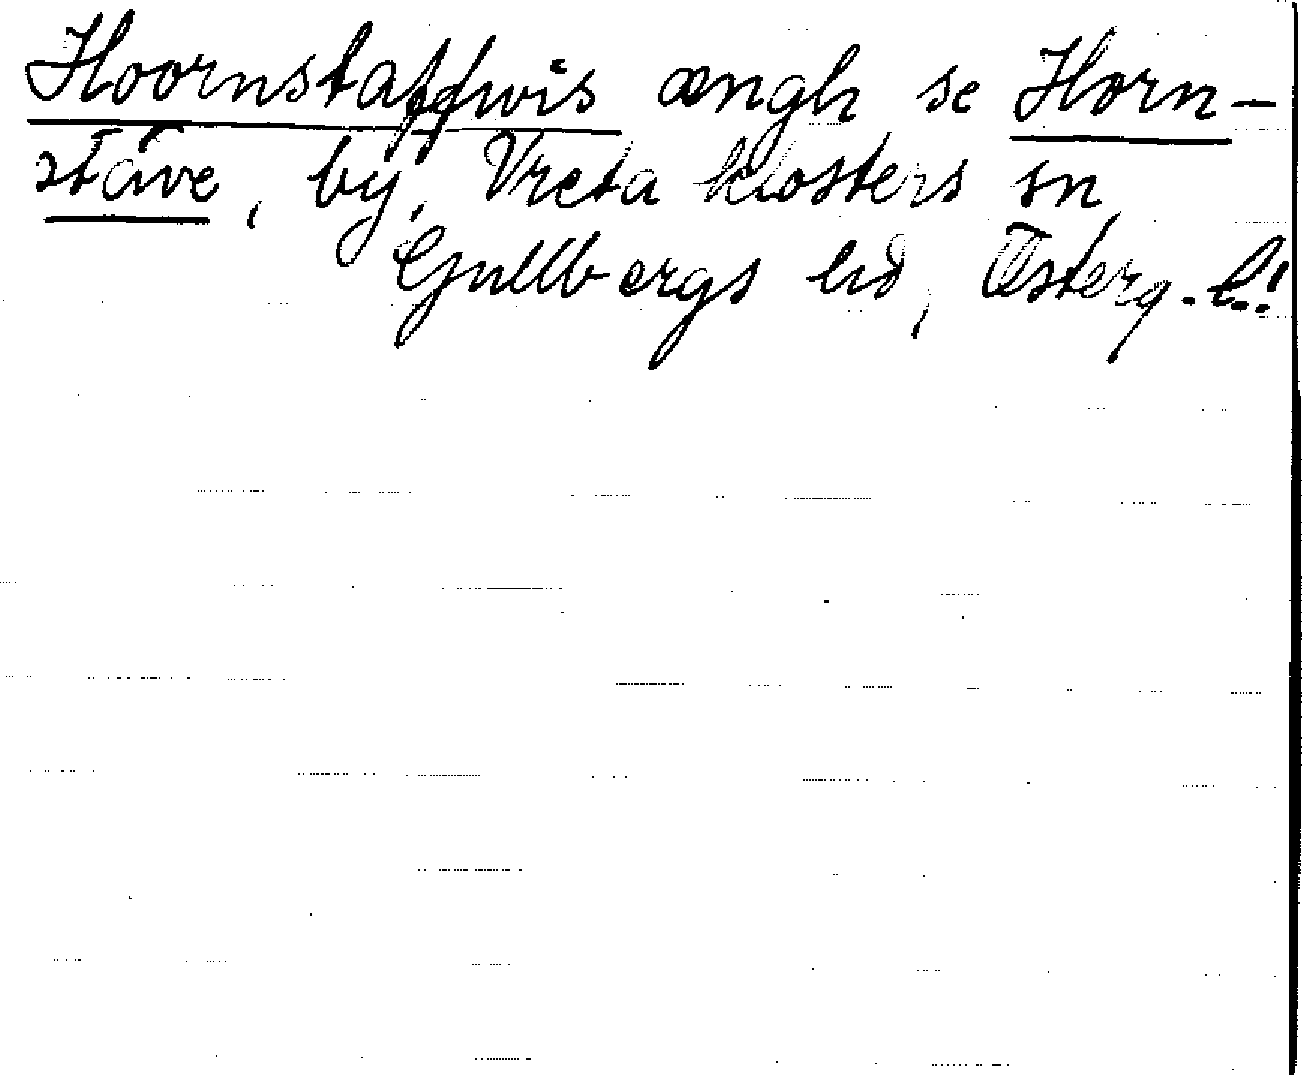 Hoornstaffwis ængh se Horn-
stäve, by, Vreta klosters sn,
Gullbergs hd, Österg. l.!